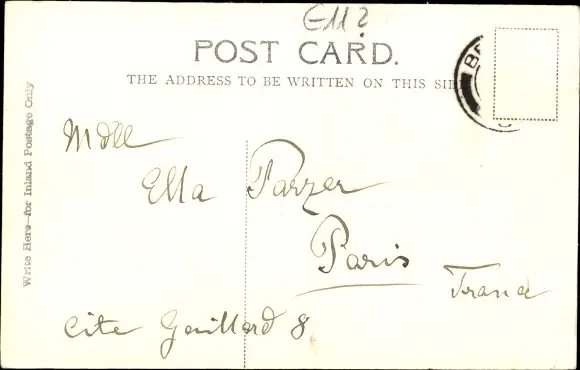 E11?
POST CARD.
THE ADDRESS TO BE WRITTEN ON THIS SIDE
Write Here—for Inland Postage Only
Mdlle
Ella Parzer
Paris
France
Cite Gaillard 8